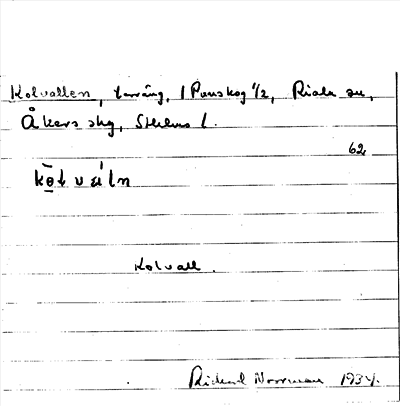 Kolvallen, terräng, 1 Panskog 1/2, Riala sn,
Åkers skg, Sthlms l.
62
kō̱ɫ v á l n
Kolvall.
Rickard Norrman 1934.